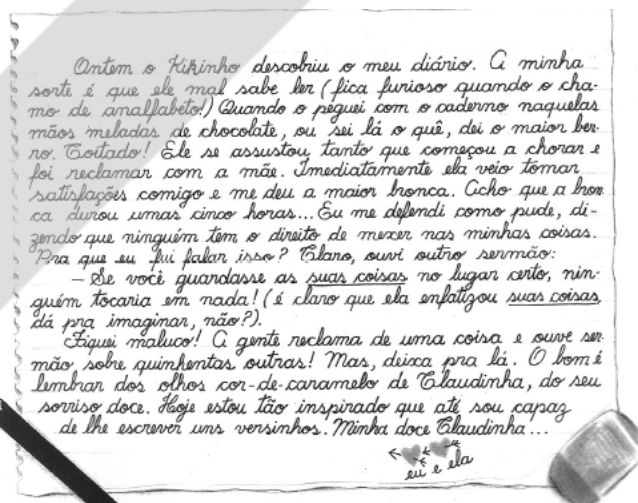 Ontem o Kikinho descobriu o meu diário. A minha
sorte é que ele mal sabe ler (fica furioso quando o cha-
mo de analfabeto!) Quando o peguei com o caderno naquelas
mãos meladas de chocolate, ou sei lá o quê, dei o maior ber-
ro. Coitado! Ele se assustou tanto que começou a chorar e
foi reclamar com a mãe. Imediatamente ela veio tomar
satisfações comigo e me deu a maior bronca. Acho que a bron
ca durou umas cinco horas... Eu me defendi como pude, di-
zendo que ninguém tem o direito de mexer nas minhas coisas.
Pra que eu fui falar isso? Claro, ouvi outro sermão:
– Se você guardasse as suas coisas no lugar certo, nin-
guém tocaria em nada! (é claro que ela enfatizou suas coisas,
dá pra imaginar, não?).
Fiquei maluco! A gente reclama de uma coisa e ouve ser
mão sobre quinhentas outras! Mas, deixa pra lá. O bom é
lembrar dos olhos cor-de-caramelo de Claudinha, do seu
sorriso doce. Hoje estou tão inspirado que até sou capaz
de lhe escrever uns versinhos. Minha doce Claudinha...
eu e ela